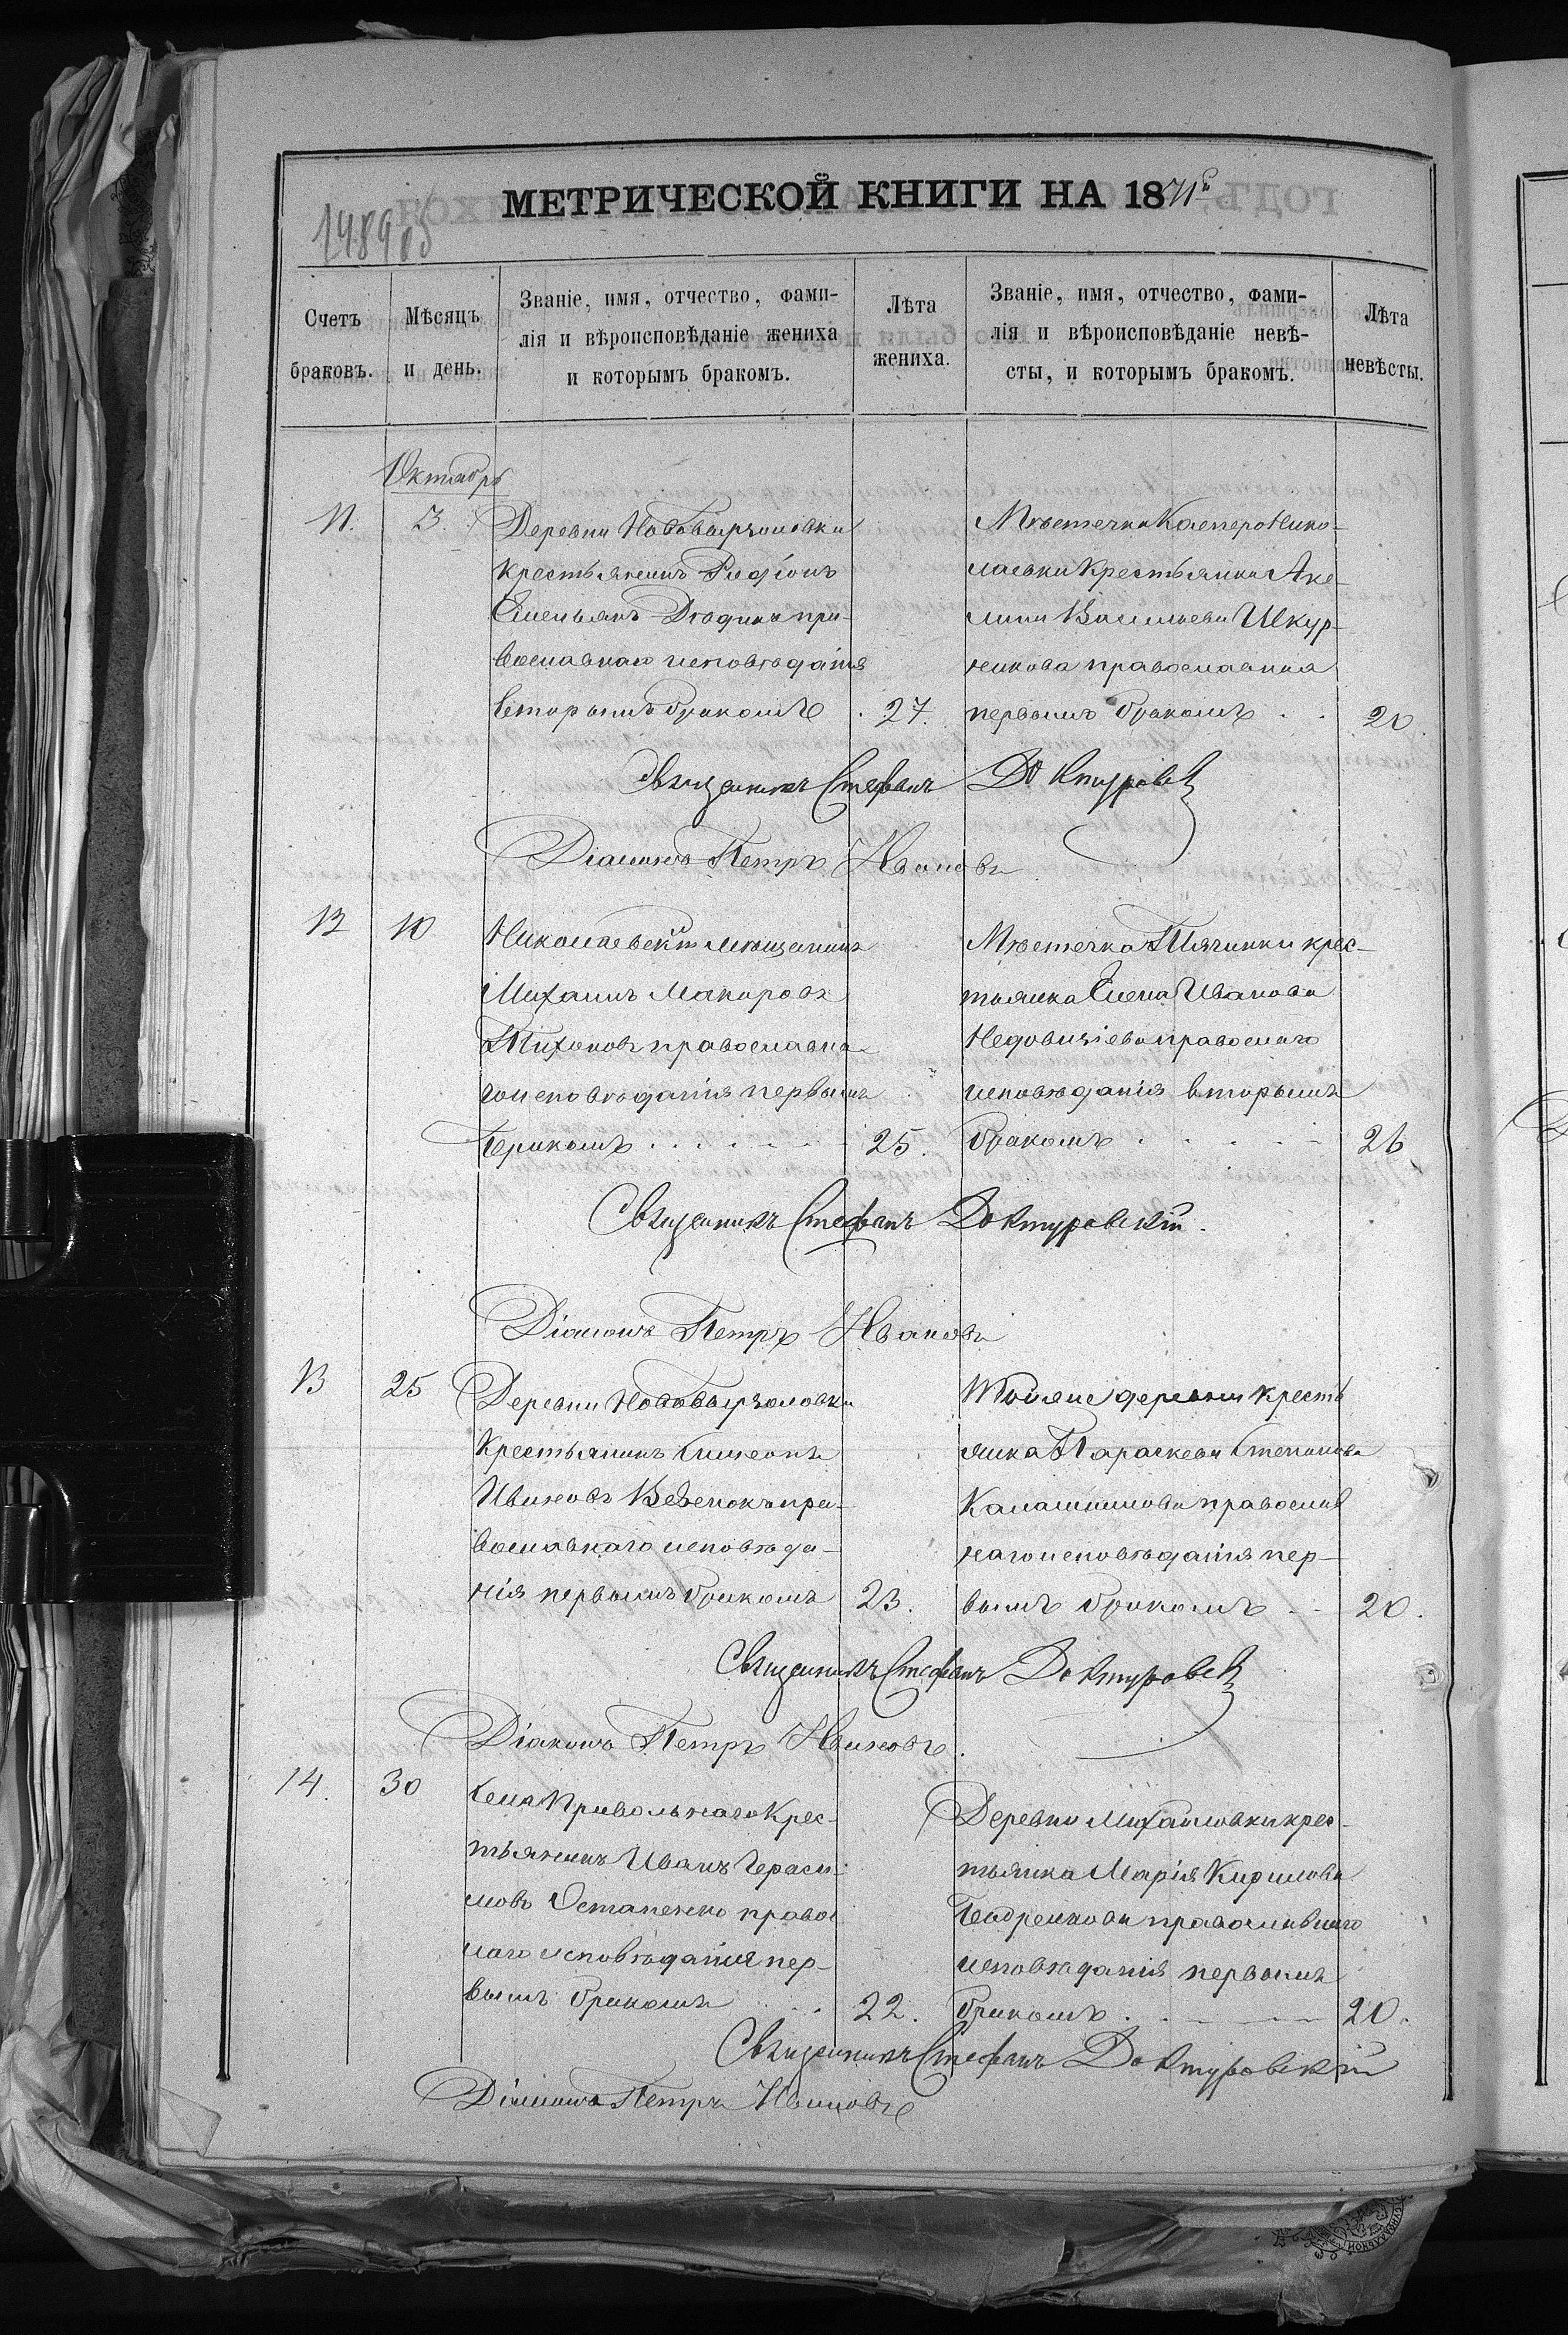 МЕТРИЧЕСКОЙ КНИГИ НА 1871
Счетъ браковъ.
Мѣсяцъ и день.
Званіе, имя, отчество, фами-
лія и вѣроисповѣданіе жениха
и которымъ бракомъ.
Лѣта жениха.
Званіе, имя, отчество, фами-
лія и вѣроисповѣданіе невѣ-
сты, и которымъ бракомъ.
Лѣта невѣсты.
Октябрь
11. 3.
Деревни
крестьянинъ Родіонъ
Емельянъ Дюдинъ пра-
вославнаго исповѣданія
вторымъ бракомъ . 27.
Мѣстечка Касперо Нико-
лаевки крестьянка Аке-
лина Васильева Шкур-
никова православная
первымъ бракомъ . . 20.
Священникъ Стефанъ Доктуровск
Діаконъ Петръ Ивановъ
12 10
Николаевскій мѣщанинъ
Михаилъ Макаровъ
Тихоновъ православна
го исповѣданія первымъ
бракомъ 25.
Мѣстечка крес-
тьянка Елена Иванова
православнаго
исповѣданія вторымъ
бракомъ 26
Священникъ Стефанъ Доктуровскій.
Діаконъ Петръ Ивановъ
13 25
Деревни
Крестьянинъ Симеонъ
Ивановъ пра-
вославнаго исповѣда-
нія первымъ бракомъ 23.
Той же деревни кресть
янка Параскева Степанова
Калашникова православ
наго исповѣданія пер-
вымъ бракомъ 20.
Священникъ Стефанъ Доктуровск
Діаконъ Петръ Ивановъ.
14. 30
Села Привольнаго Крес-
тьянинъ Иванъ Гераси-
мовъ Остапенко правос
наго исповѣданія пер-
вымъ бракомъ 22.
Деревни Михайловки крес-
тьянка Марія Кирилова
православнаго
исповѣданія первымъ
бракомъ 20.
Священникъ Стефанъ Доктуровскій
Діаконъ Петръ Ивановъ